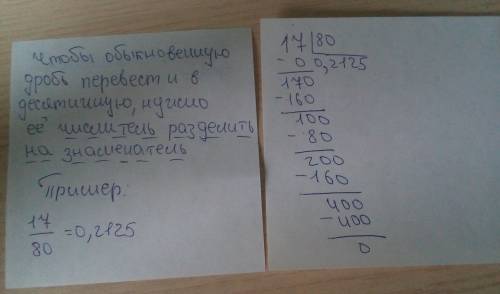 Чтобы обыкновенную
дробь перевести в
десятичную, нужно
её числитель разделить
на знаменатель
Пример:
17/80 = 0,2125
17 | 80
- 0 0,2125
170
-160
100
- 80
200
-160
400
-400
0